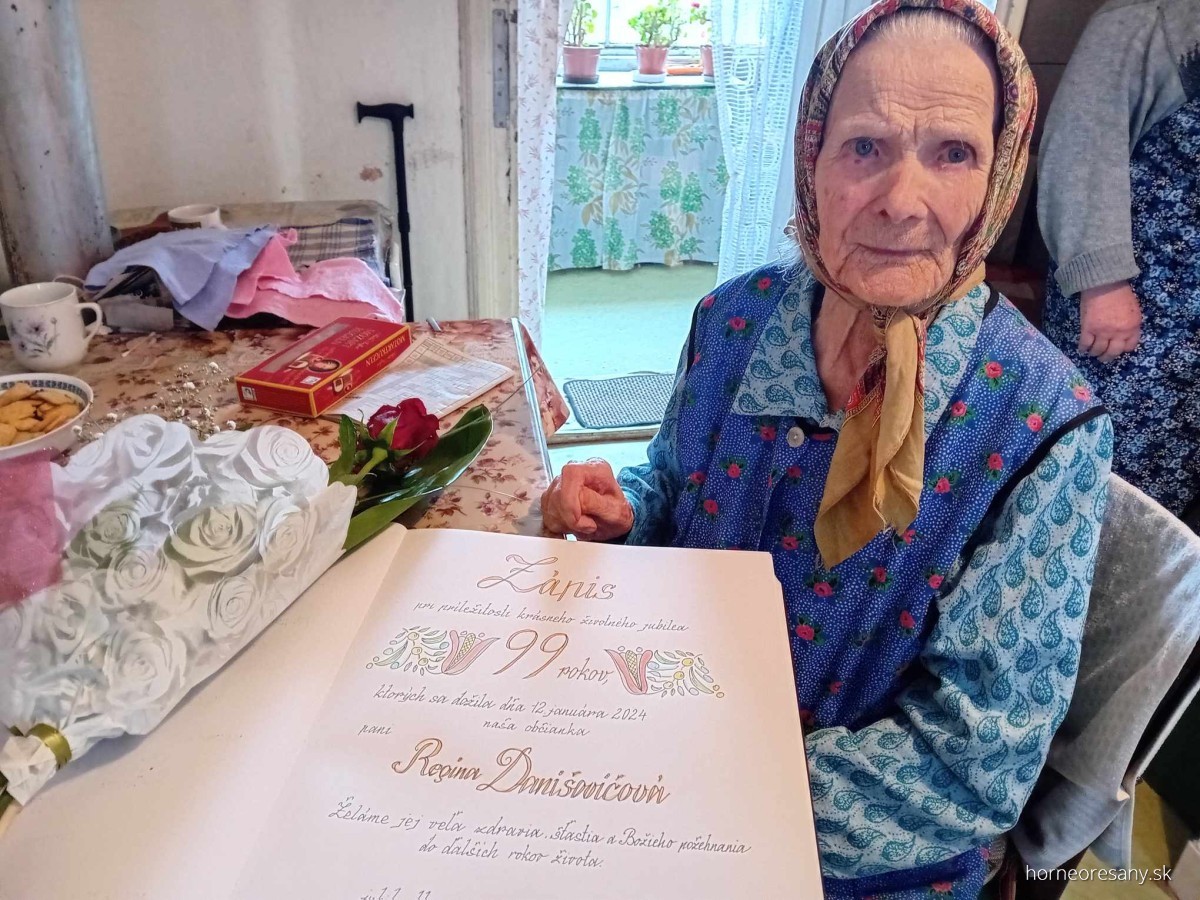 Zápis
pri príležitosti krásneho životného jubilea
99 rokov,
ktorých sa dožila dňa 12. januára 2024
naša občianka
pani
Regina Danišovičová
Želáme jej veľa zdravia, šťastia a Božieho požehnania
do ďalších rokov života.
horneoresany.sk